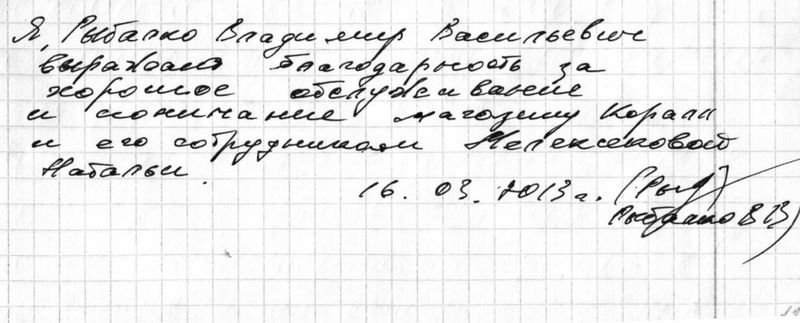 Я, Рыбалко Владимир Васильевич
выражаю благодарность за
хорошое обслуживание
и понимание магазину Коралл
и его сотрудникам Нелексковой
Натальи.
16. 03. 2013г. (Рыб)
Рыбалко В В)